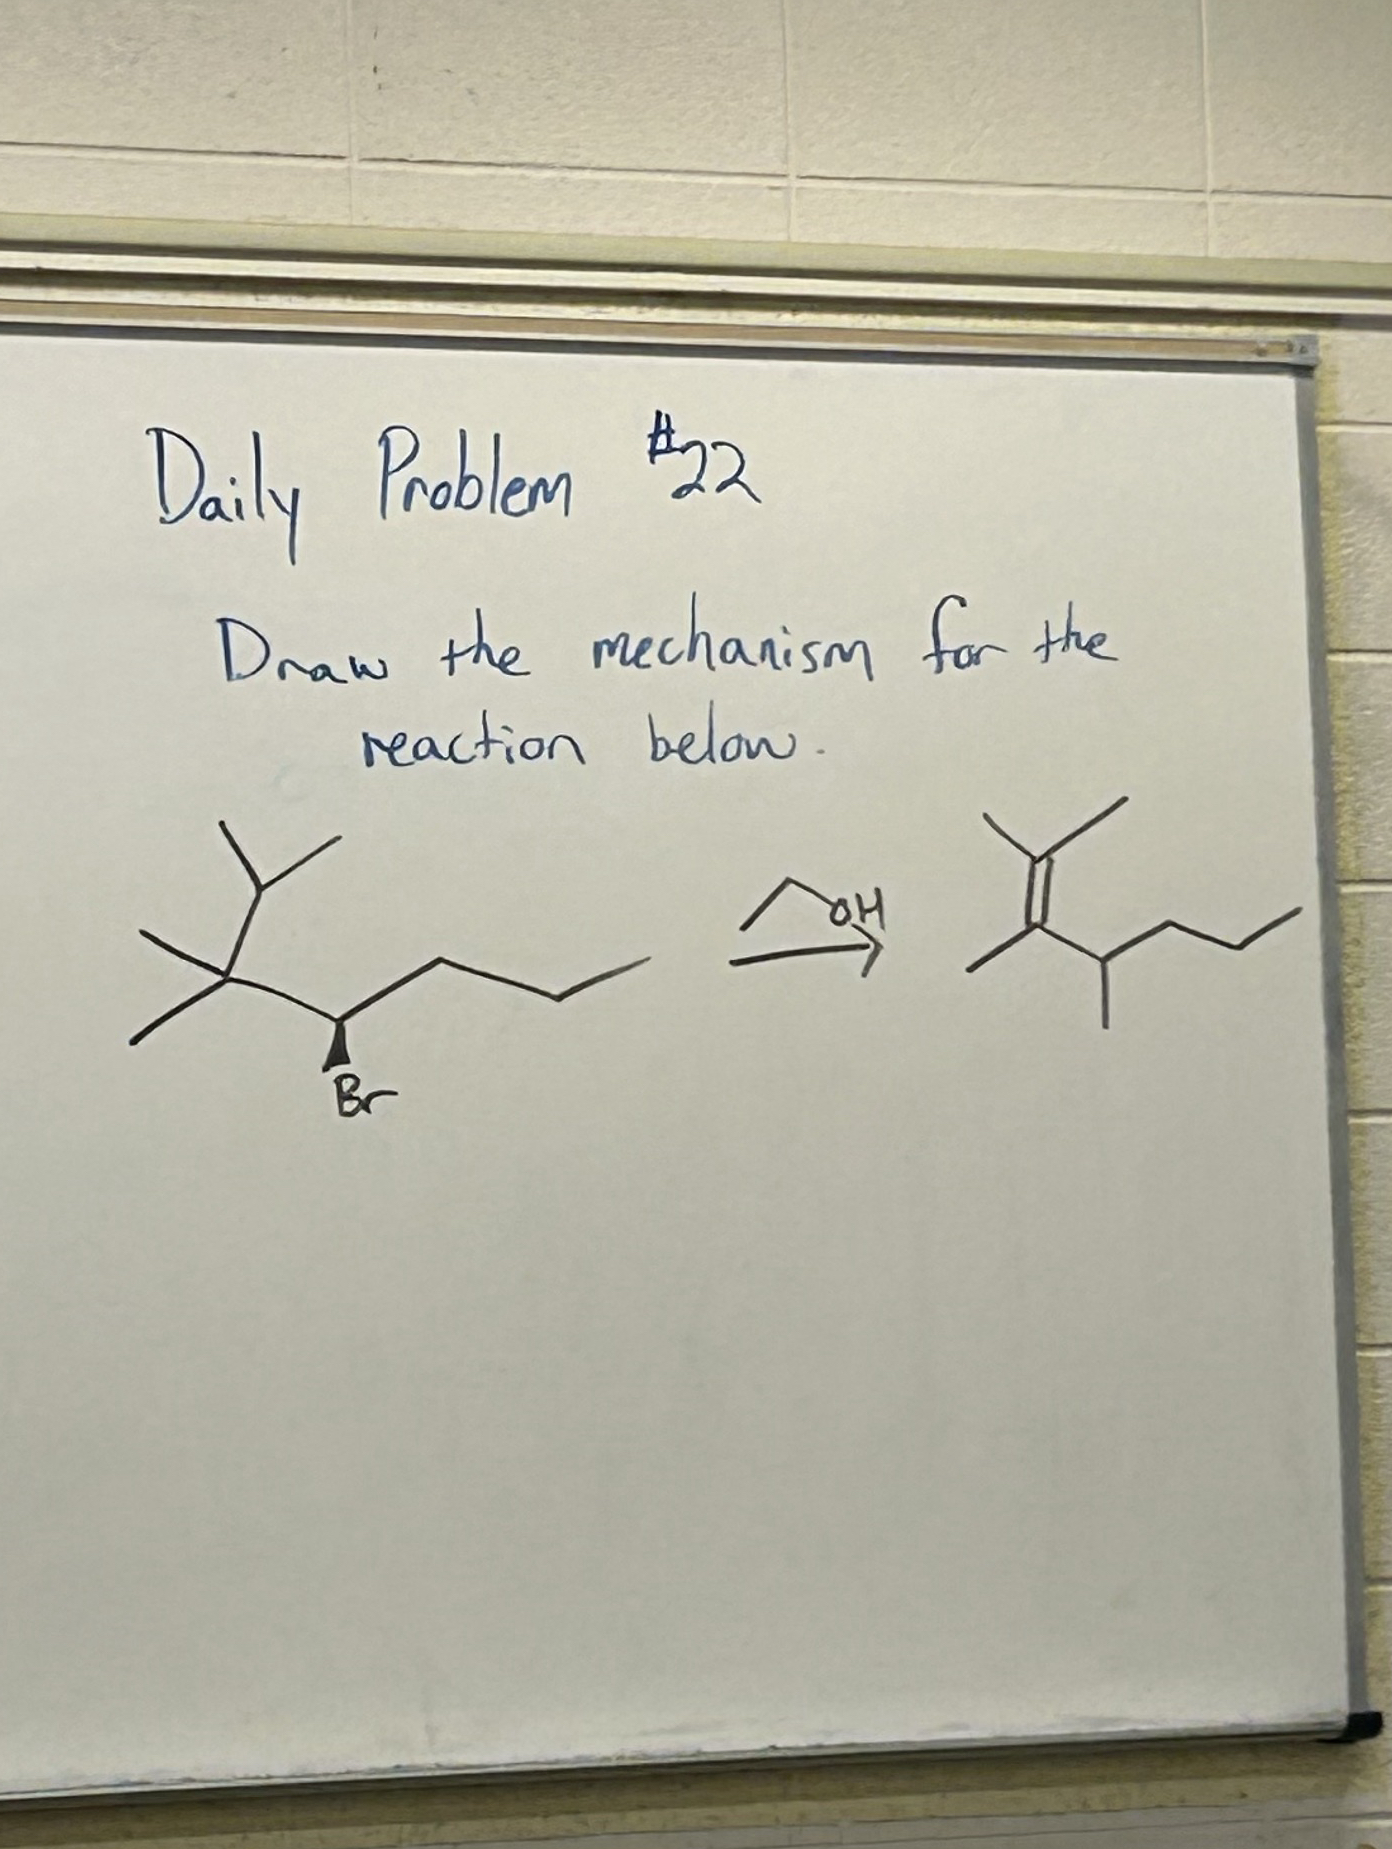 Daily Problem #22
Draw the mechanism for the
reaction below.
OH
Br